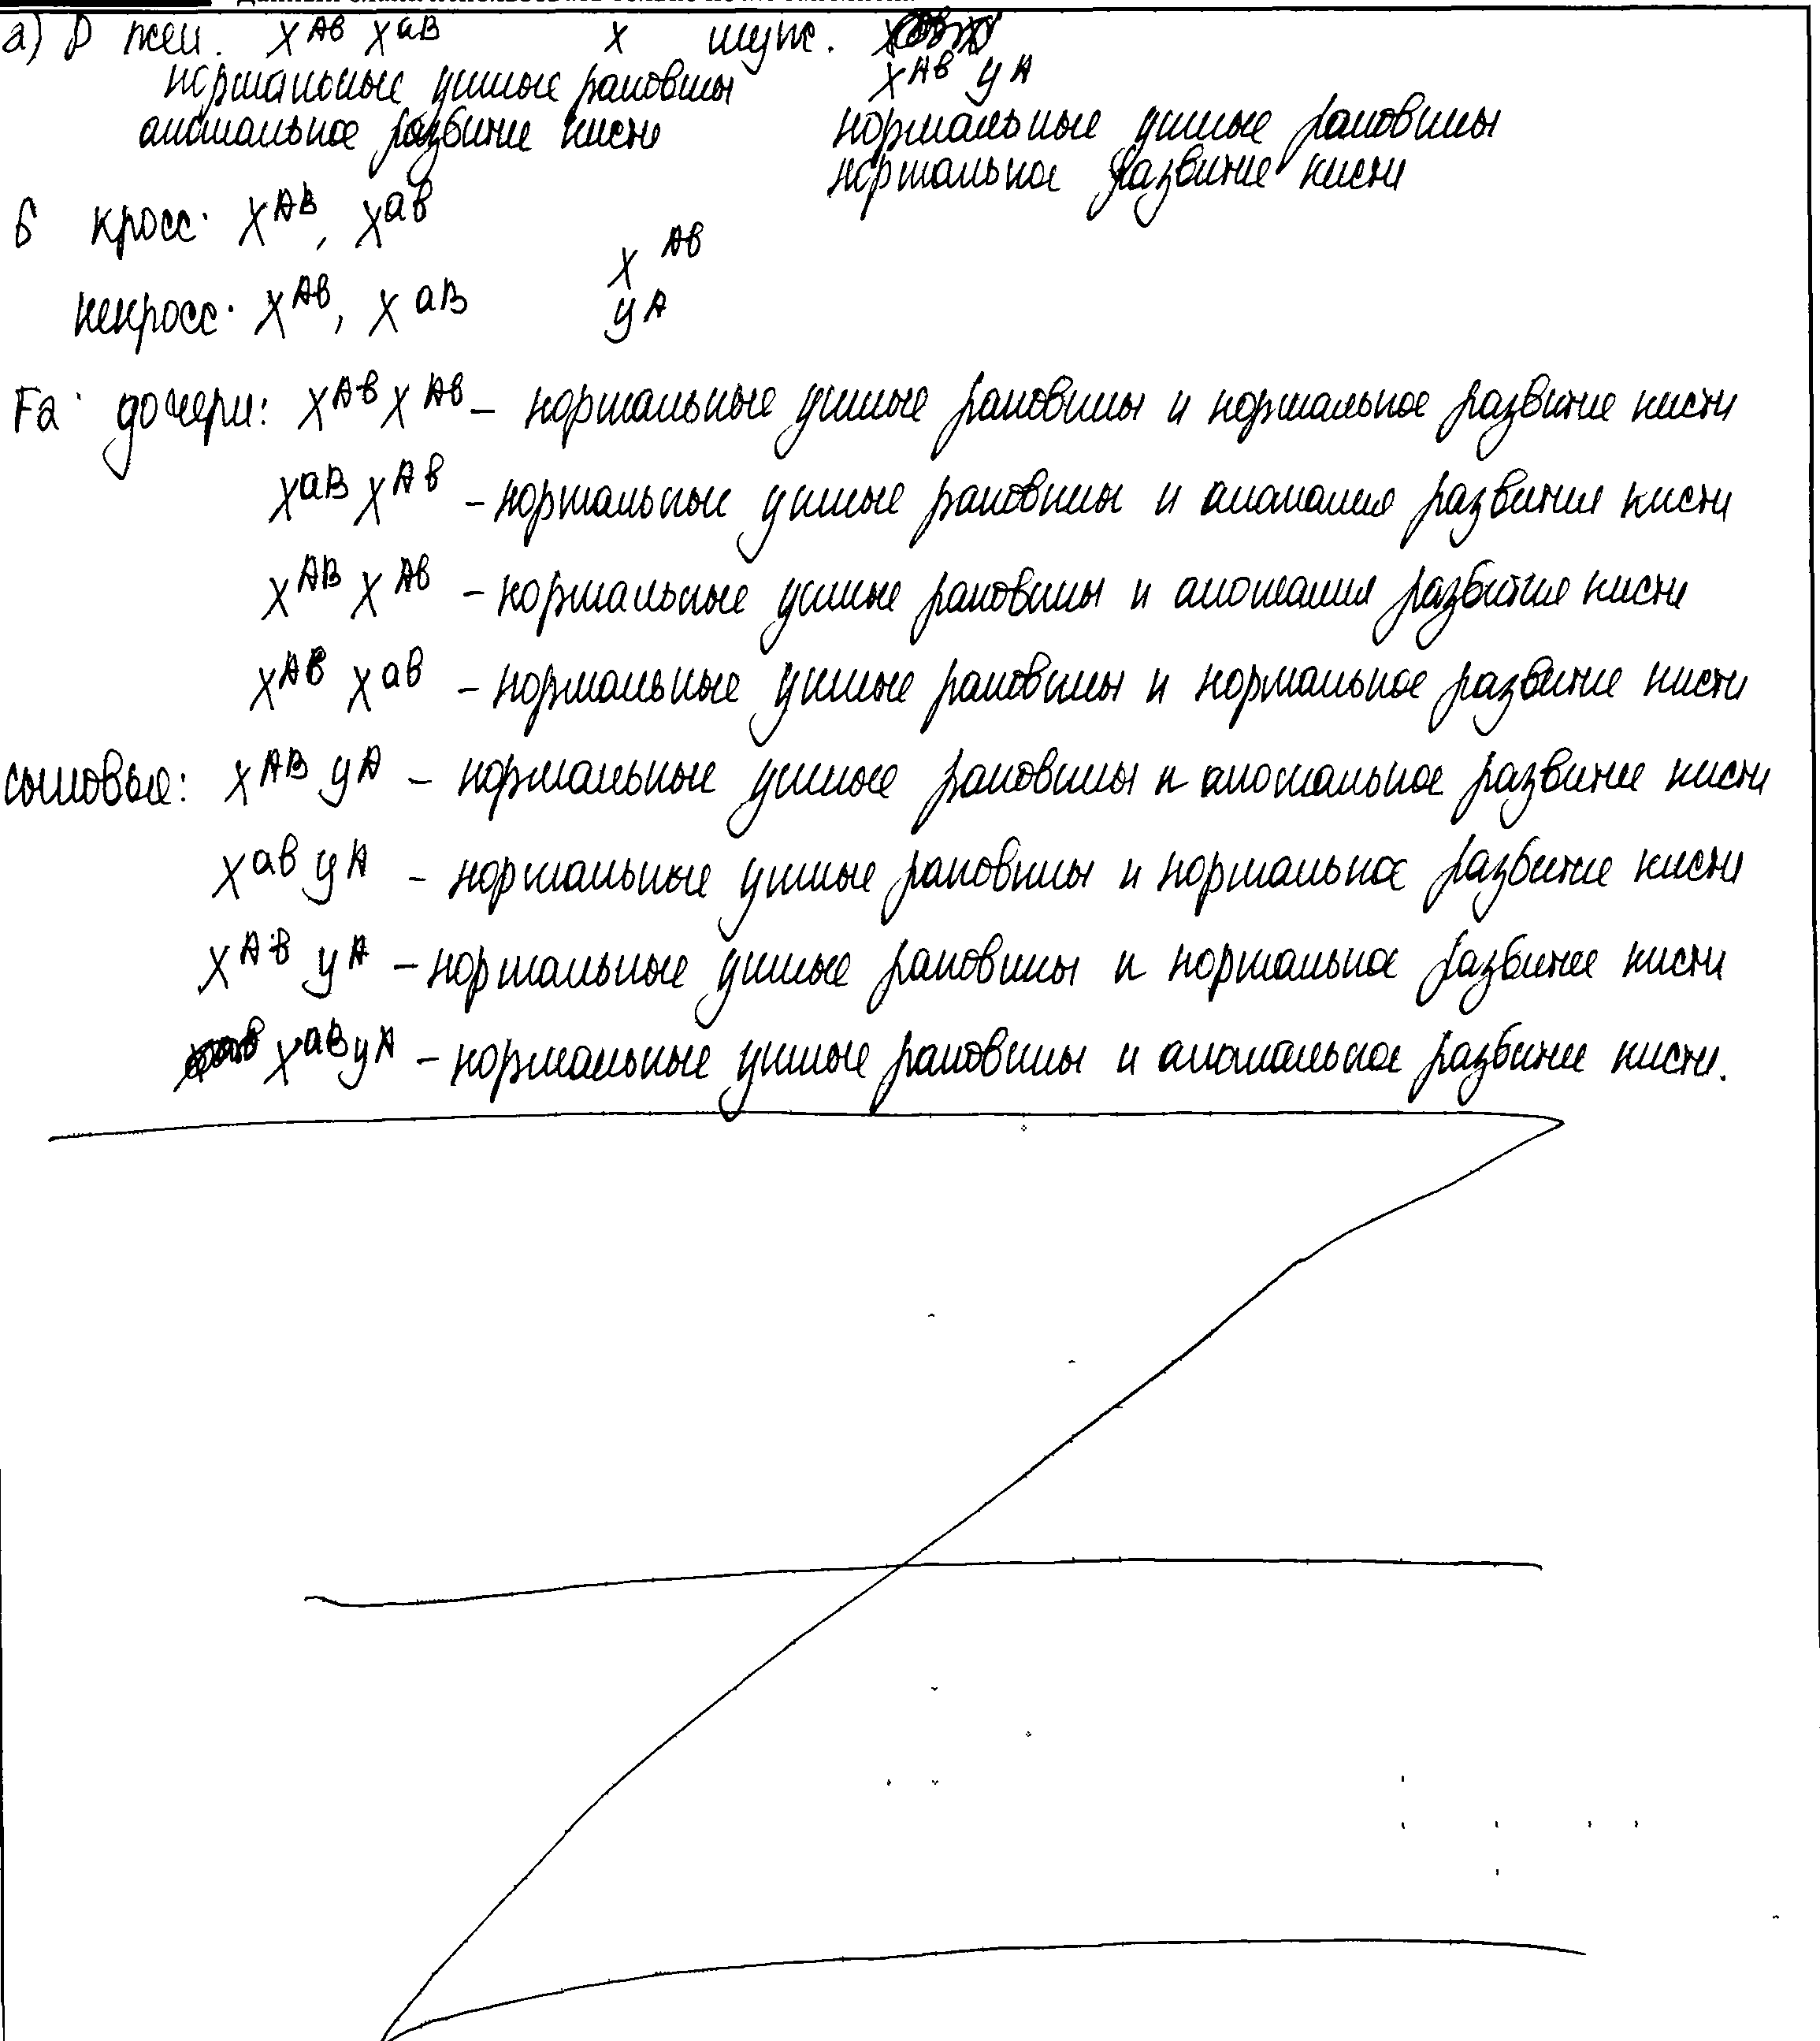 а) P жен. X^Aв X^aB x муж.
X^Aв y^A
нормальные ушные раковины
аномальное развитие кисти
нормальные ушные раковины
нормальное развитие кисти
G кросс. X^AB, X^aв
некросс. X^Aв, X^aB
X^Aв
y^A
Fa: дочери: X^Aв X^Aв – нормальные ушные раковины и нормальное развитие кисти
X^aB X^Aв – нормальные ушные раковины и аномалия развития кисти
X^AB X^Aв – нормальные ушные раковины и аномалия развития кисти
X^Aв X^aв – нормальные ушные раковины и нормальное развитие кисти
сыновья: X^AB y^A – нормальные ушные раковины и аномальное развитие кисти
X^aв y^A – нормальные ушные раковины и нормальное развитие кисти
X^Aв y^A – нормальные ушные раковины и нормальное развитие кисти
X^aB y^A – нормальные ушные раковины и аномальное развитие кисти.